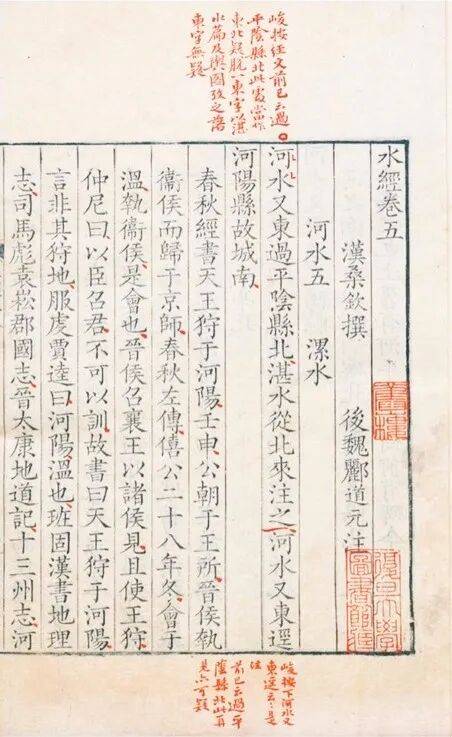 峻按經文前已云過
平陰縣北此處當作
東北疑脫一東字以湛
水篇及輿圖攷之
東字無疑
水經卷五
漢桑欽撰 後魏酈道元注
河水五 漯水
河水又東過平陰縣北湛水從北來注之河水又東逕
河陽縣故城南
春秋經書天王狩于河陽壬申公朝于王所晉侯執
衞侯而歸于京師春秋左傳僖公二十八年冬會于
溫執衞侯是會也晉侯召襄王以諸侯見且使王狩
仲尼曰以臣召君不可以訓故書曰天王狩于河陽
言非其狩地服虔賈逵曰河陽溫也班固漢書地理
志司馬彪袁崧郡國志晉太康地道記十三州志河
峻按下河水又
東逕云云是
注
前已云過平
陰縣北此再
見亦可疑
書樓
復旦大學
圖書館藏